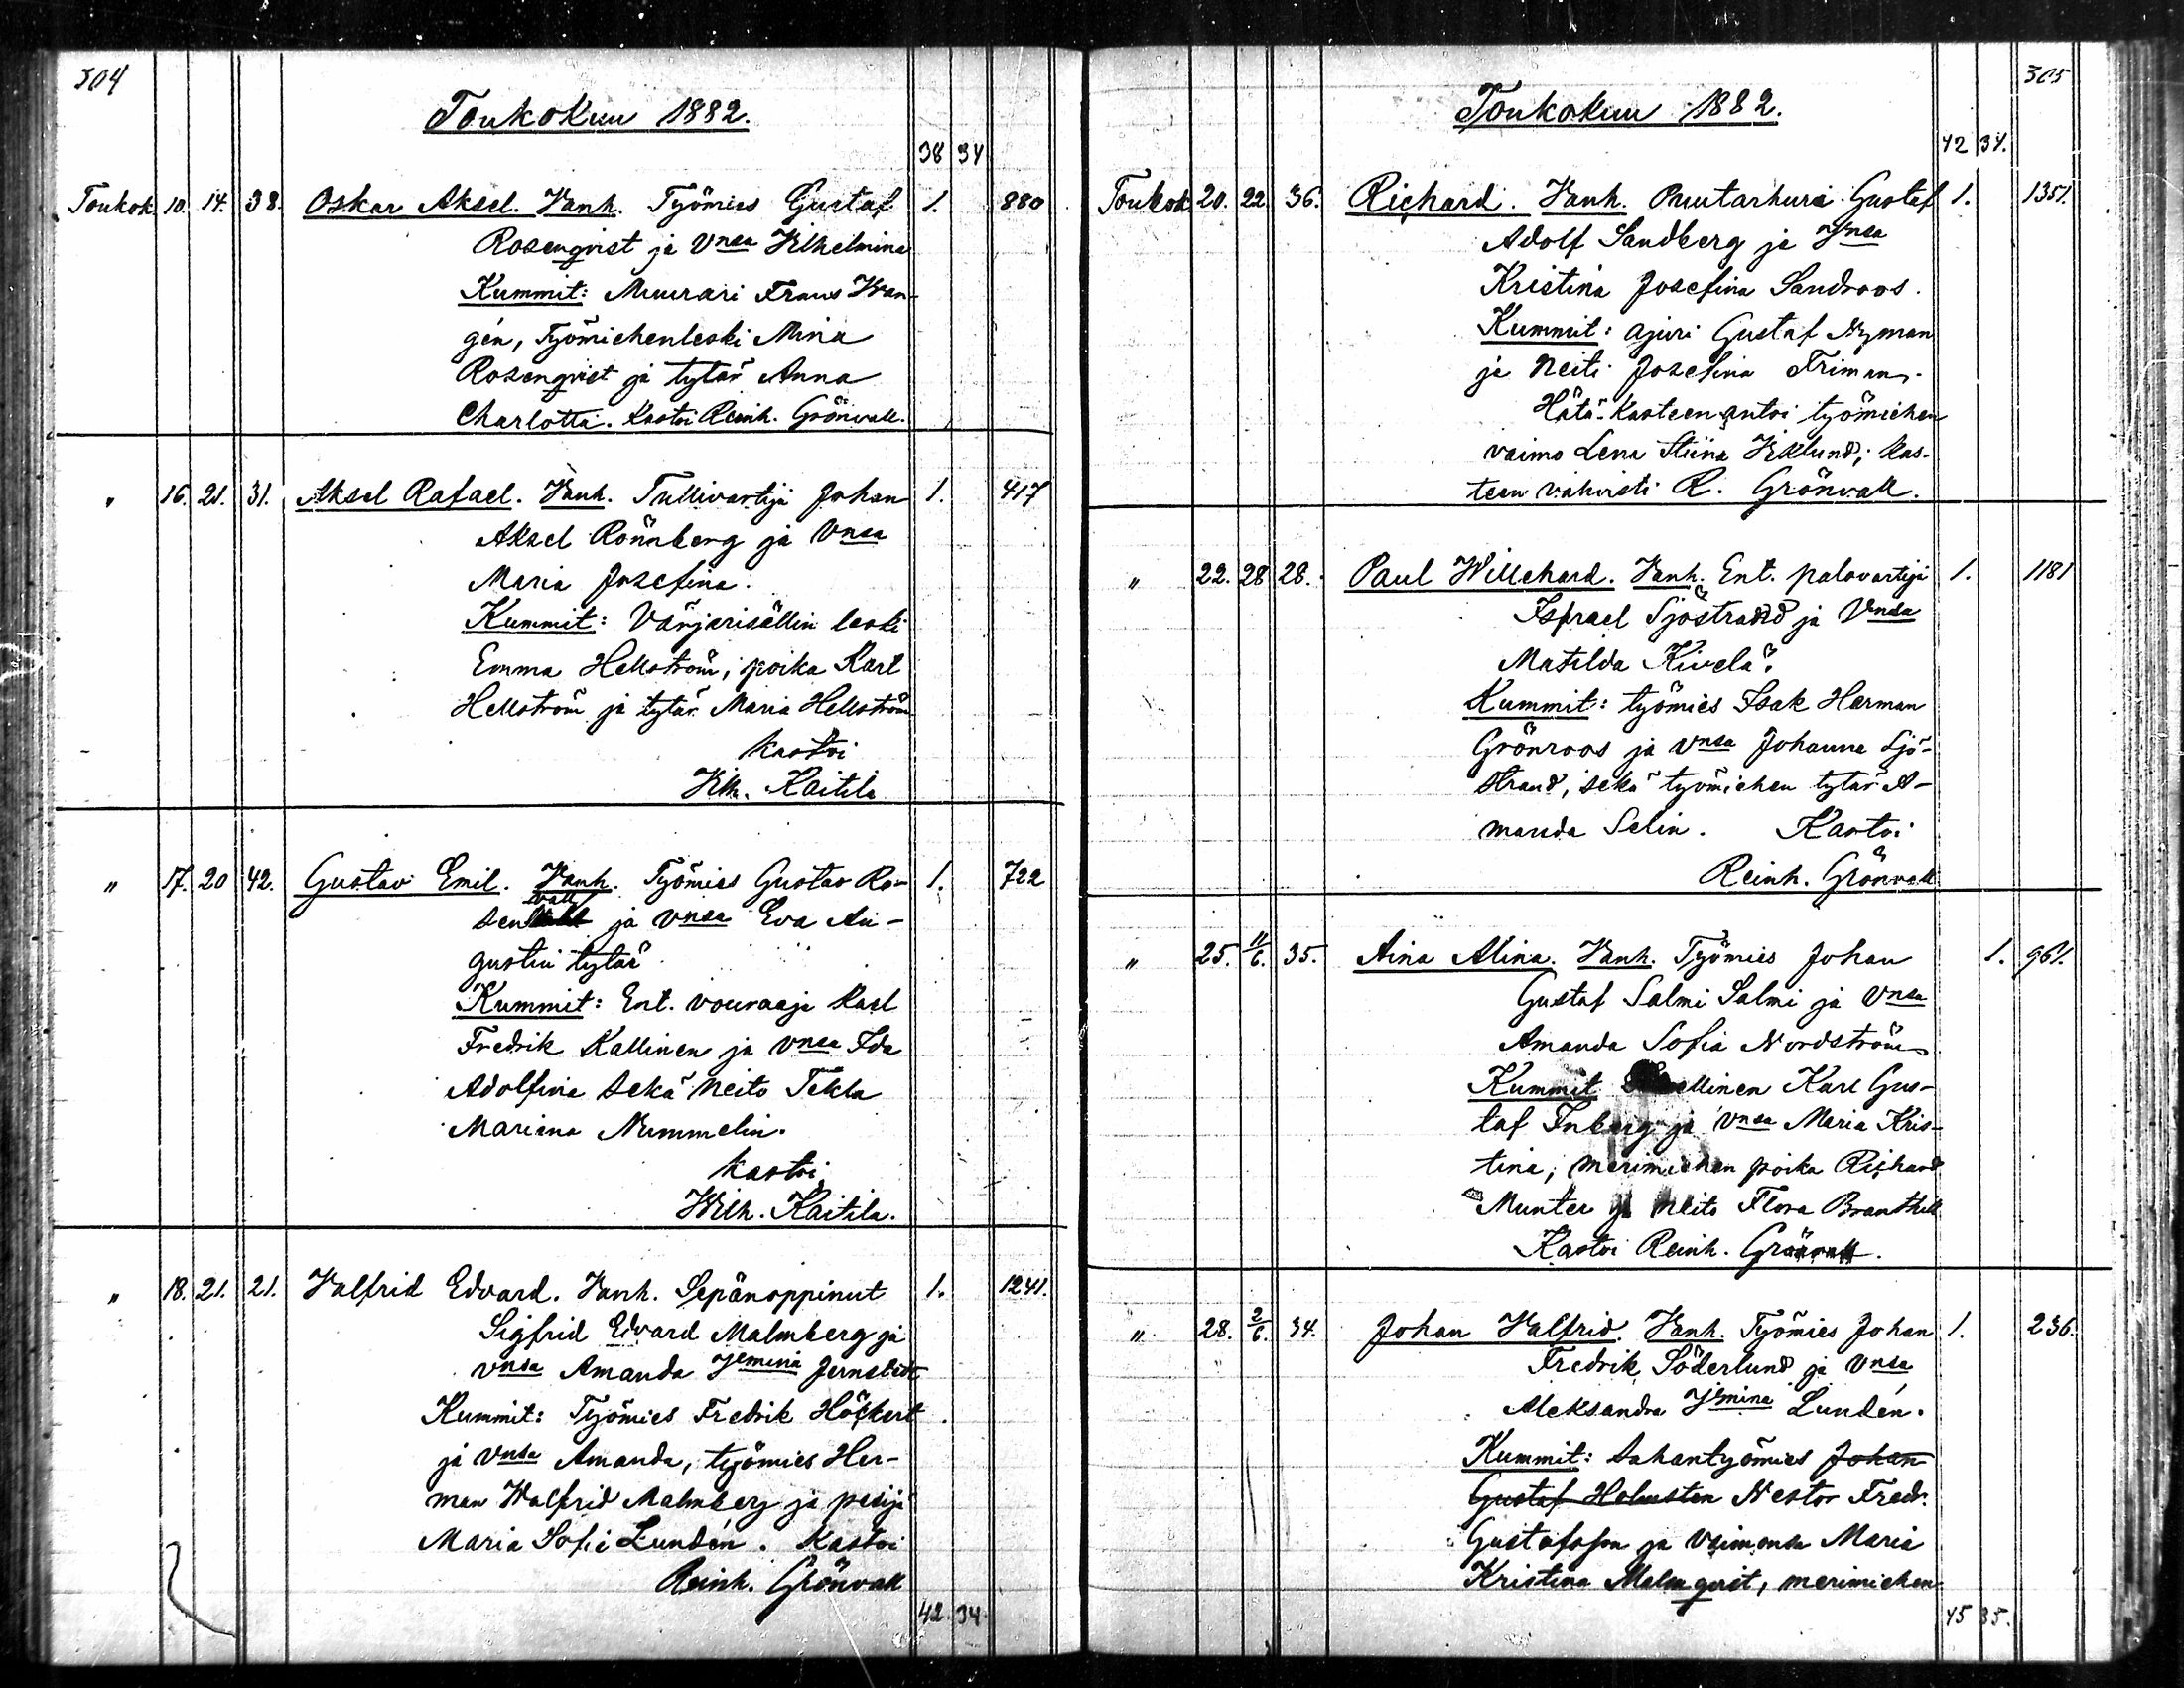 304
Toukokuu 1882.
38 34
Toukok. 10. 14. 38. Oskar Aksel. Vanh. Työmies Gustaf 1. 880
Rosenqvist ja Vnsa Vilhelmina
Kummit: Muurari Frans Wan-
gén, Työmiehenleski Mina
Rosenqvist ja tytär Anna
Charlotta. Kastoi Reinh. Grönvall.
" 16. 21. 31. Aksel Rafael. Vanh. Tullivartija Johan 1. 417
Aksel Rönnberg ja Vnsa
Maria Josefina.
Kummit: Värjärisällin leski
Emma Hellström, poika Karl
Hellström ja tytär Maria Hellström
Kastoi
Vilh. Kaitila
" 17. 20 42. Gustav Emil. Vanh. Työmies Gustav Ro- 1. 722
vall
sen ja Vnsa Eva Au-
gustin tytär
Kummit: Ent. vouraaja Karl
Fredrik Kallinen ja Vnsa Ida
Adolfina sekä Neito Tekla
Mariana Nummelin.
Kastoi
Wilh. Kaitila.
" 18. 21. 21. Valfrid Edvard. Vanh. Sepänoppinut 1. 1241.
Sigfrid Edvard Malmberg ja
Vnsa Amanda Vlmina Jernstedt
Kummit: Työmies Fredrik Höckert
ja Vnsa Amanda, työmies Her-
man Walfrid Malmberg ja pesijä
Maria Sofia Lundén. Kastoi
Reinh. Grönvall
42. 34.
305
Toukokuu 1882.
42 34.
Toukok. 20. 22. 36. Richard. Vanh. Puutarhuri Gustaf 1. 1351.
Adolf Sandberg ja Vnsa
Kristina Josefina Sandroos.
Kummit: ajuri Gustaf Nyman
ja Neiti Josefina Friman.
Hätä-Kasteen antoi työmiehen
vaimo Lena Stiina Viklund; kas-
teen vahvisti R. Grönvall.
" 22. 28 28. Paul Willehard. Vanh. Ent. palovartija 1. 1181
Israel Sjöstrand ja Vnsa
Matilda Kivelä.
Kummit: työmies Isak Herman
Grönroos ja Vnsa Johanna Sjö-
strand, sekä työmiehen tytär A-
manda Selin. Kastoi
Reinh. Grönvall
" 25. 11/6. 35. Aina Alina. Vanh. Työmies Johan 1. 961.
Gustaf Salmi Salmi ja Vnsa
Amanda Sofia Nordström
Kummit Karl Gus-
taf Inberg ja Vnsa Maria Kris-
tina, merimiehen poika Richard
Munter ja Neito Flora
Kastoi Reinh. Grönvall.
" 28. 2/6. 34. Johan Valfrid. Vanh. Työmies Johan 1. 236.
Fredrik Söderlund ja Vnsa
Aleksandra Vlmina Lundén.
Kummit: Sahantyömies Johan
Gustaf Holmsten Nestor Fredr.
Gustafsson ja Vaimonsa Maria
Kristina Malmqvist, merimiehen
45 35.